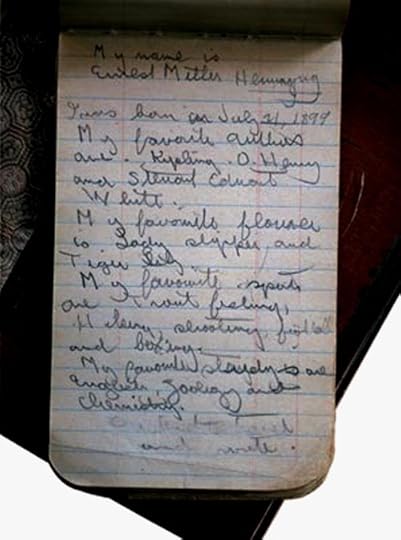 My name is
Ernest Miller Hemingway
I was born on July 21, 1899
My favorite authors
are. Kipling. O. Henry
and Steuart Edward
White.
My favorite flower
is Lady slipper and
Tiger lily
My favourite sports
are Trout fishing,
Hiking, shooting, football
and boxing.
My favorite studys are
English zoology and
chemistry.
and write.